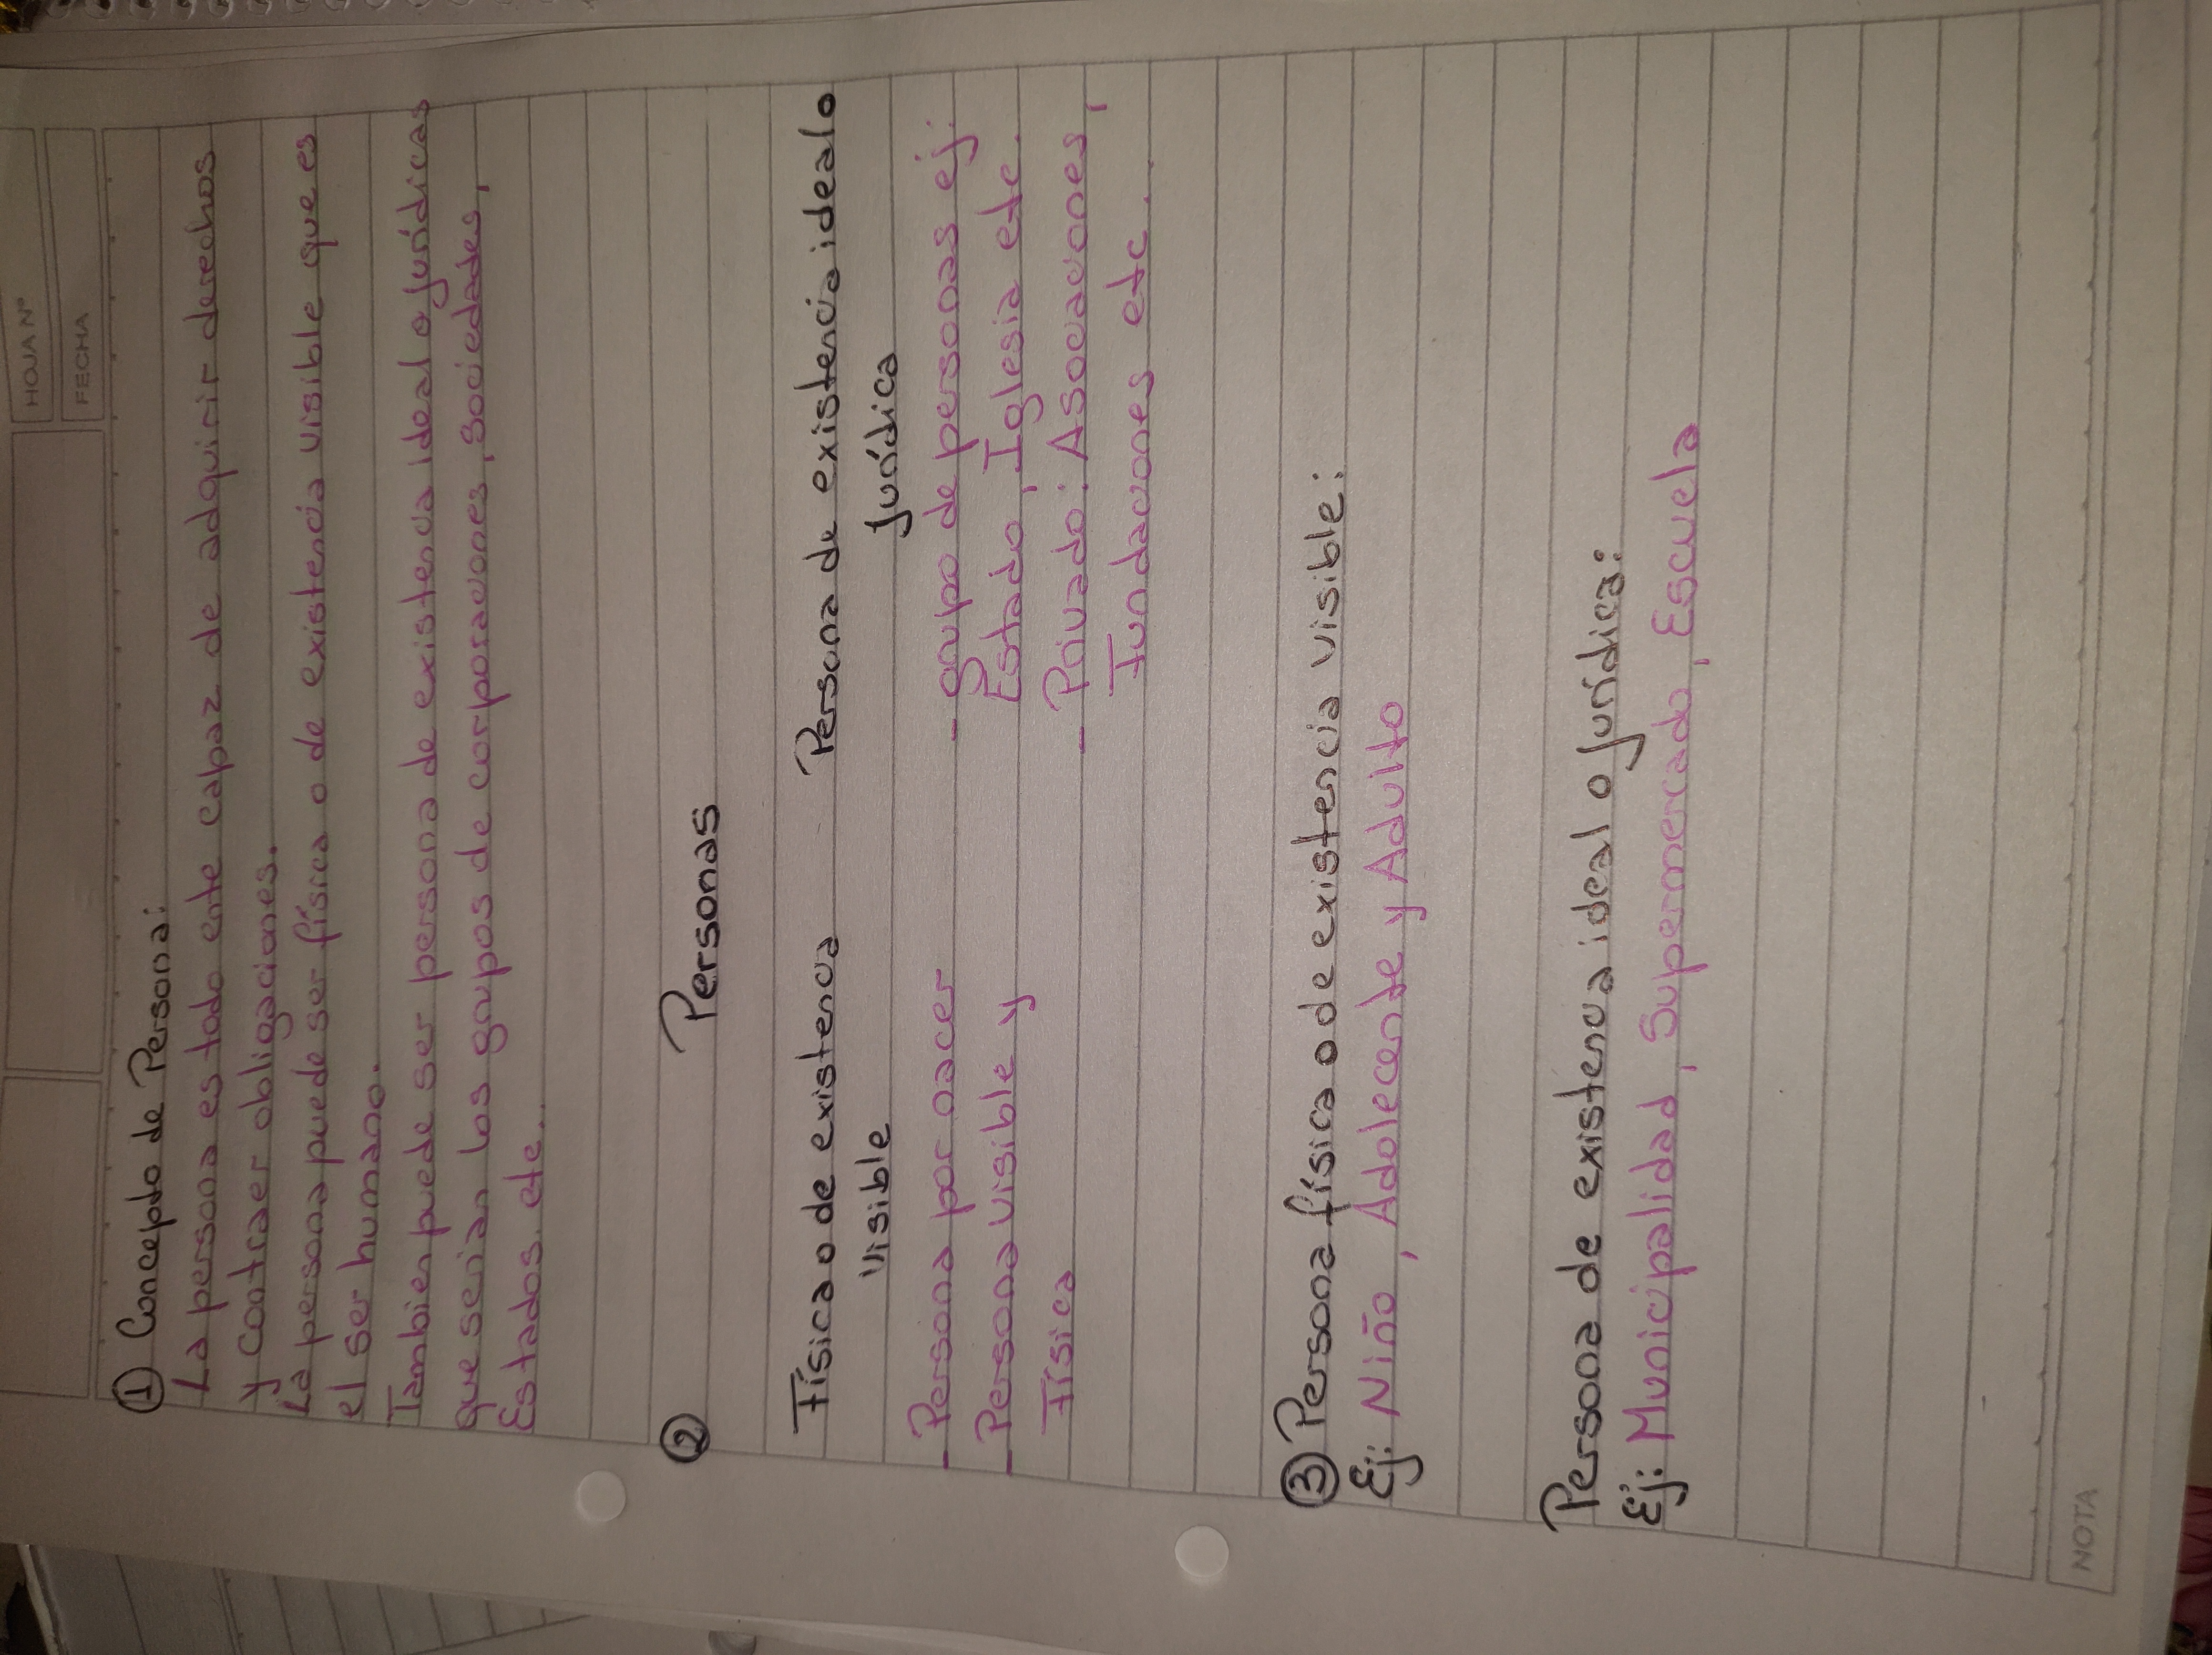 HOJA Nº
FECHA
① Concepto de Persona:
La persona es todo ente capaz de adquirir derechos
y contraer obligaciones.
La persona puede ser física o de existencia visible que es
el ser humano.
Tambien puede ser persona de existencia ideal o jurídicas
que serian los grupos de corporaciones, sociedades,
Estados, etc..
② Personas
Física o de existencia Persona de existencia ideal o
visible jurídica
- Persona por nacer - grupo de personas ej:
- Persona visible y Estado, Iglesia etc.
Física - Privado: Asociaciones,
Fundaciones etc.
③ Persona física o de existencia visible:
Ej: Niño, Adolecente y Adulto
Persona de existencia ideal o jurídica:
Ej: Municipalidad, Supermercado, Escuela
NOTA